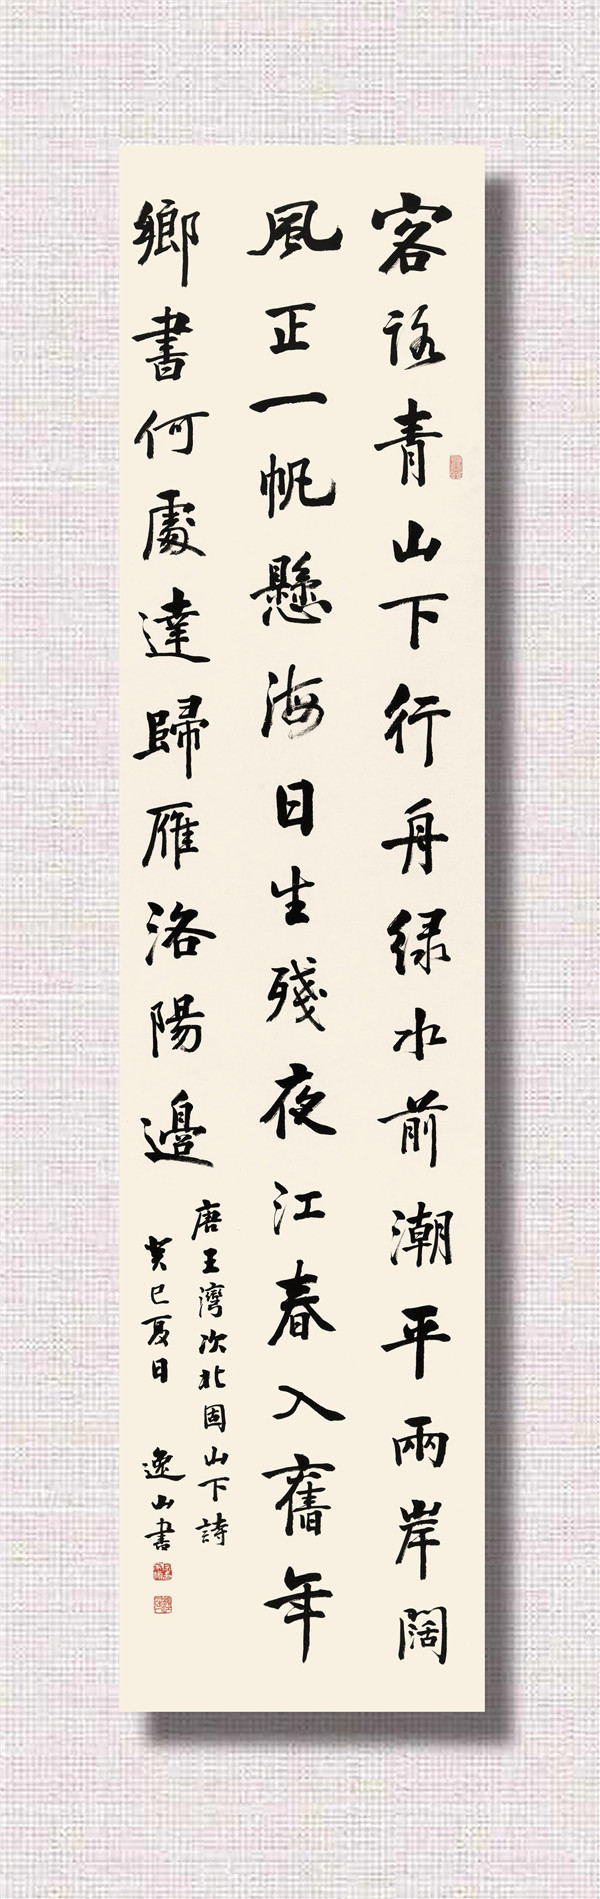 客路青山下行舟綠水前潮平兩岸闊
風正一帆懸海日生殘夜江春入舊年
鄉書何處達歸雁洛陽邊
唐王灣次北固山下詩
癸巳夏日 逸山書